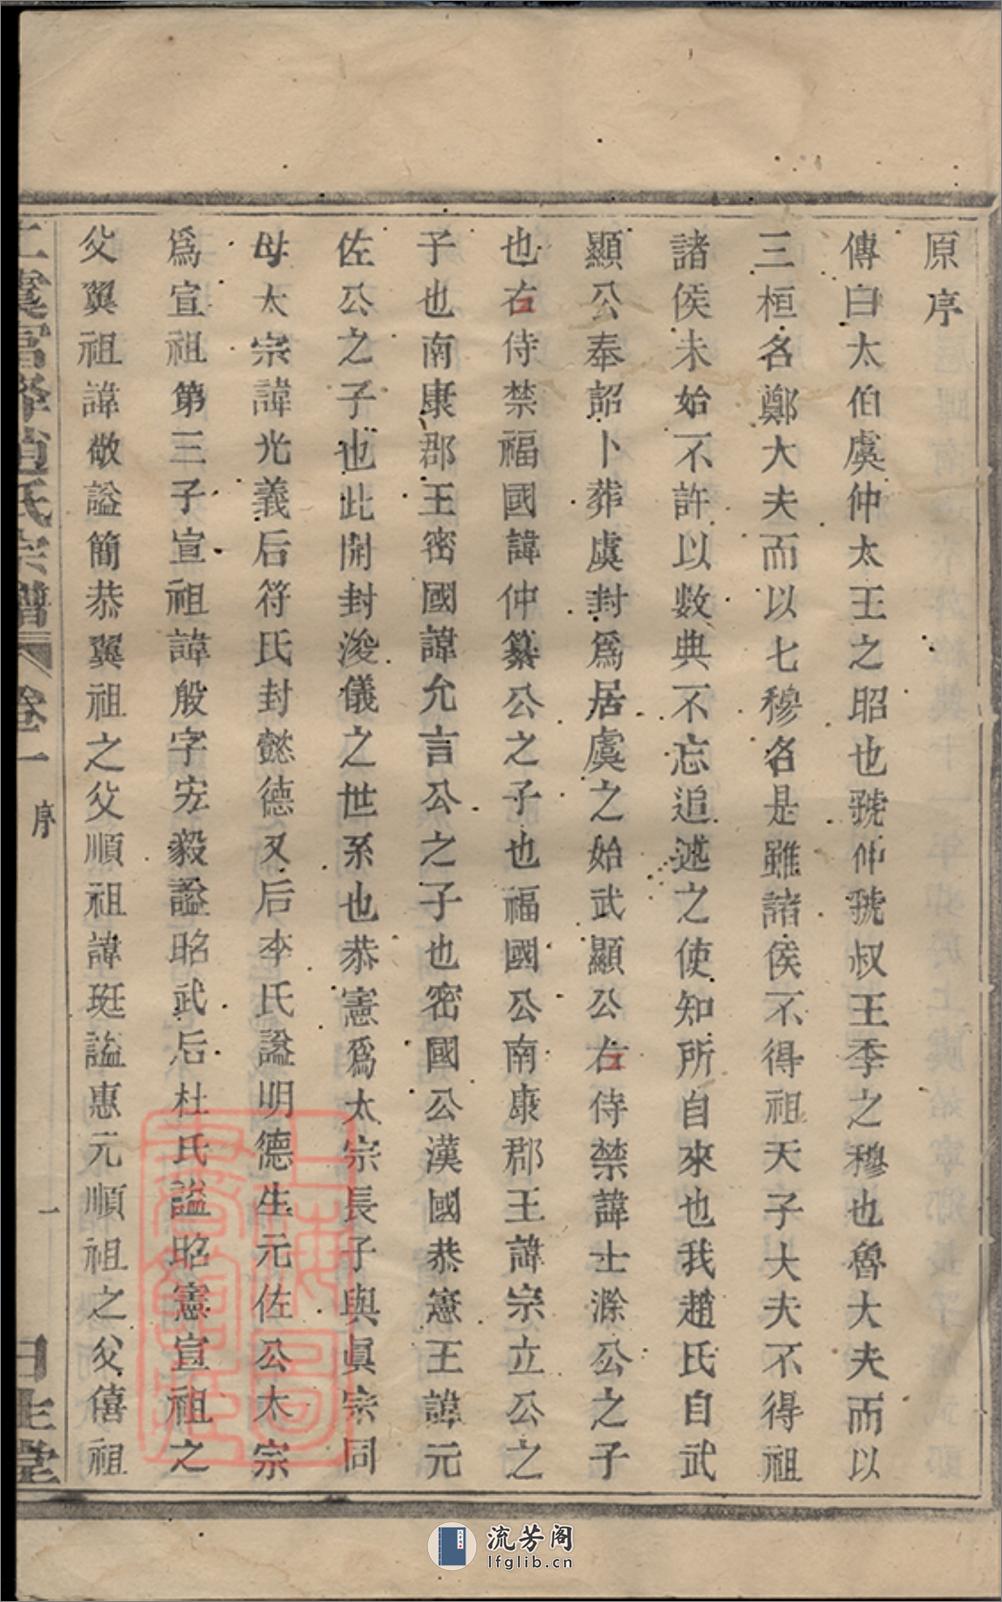 原序
傳曰太伯虞仲太王之昭也虢仲虢叔王季之穆也魯大夫而以
三桓名鄭大夫而以七穆名是雖諸侯不得祖天子大夫不得祖
諸侯未始不許以數典不忘追述之使知所自來也我趙氏自武
顯公奉詔卜葬虞封爲居虞之始武顯公右侍禁諱士滁公之子
也右侍禁福國諱仲纂公之子也福國公南康郡王諱宗立公之
子也南康郡王密國諱允言公之子也密國公漢國恭憲王諱元
佐公之子也此開封浚儀之世系也恭憲爲太宗長子與眞宗同
母太宗諱光義后符氏封懿德又后李氏諡明德生元佐公太宗
爲宣祖第三子宣祖諱殷字宏毅諡昭武后杜氏諡昭憲宣祖之
父翼祖諱敬諡簡恭翼祖之父順祖諱珽諡惠元順祖之父僖祖
趙氏宗譜 卷一 序 一
上海圖書館藏
流芳阁
lfglib.cn